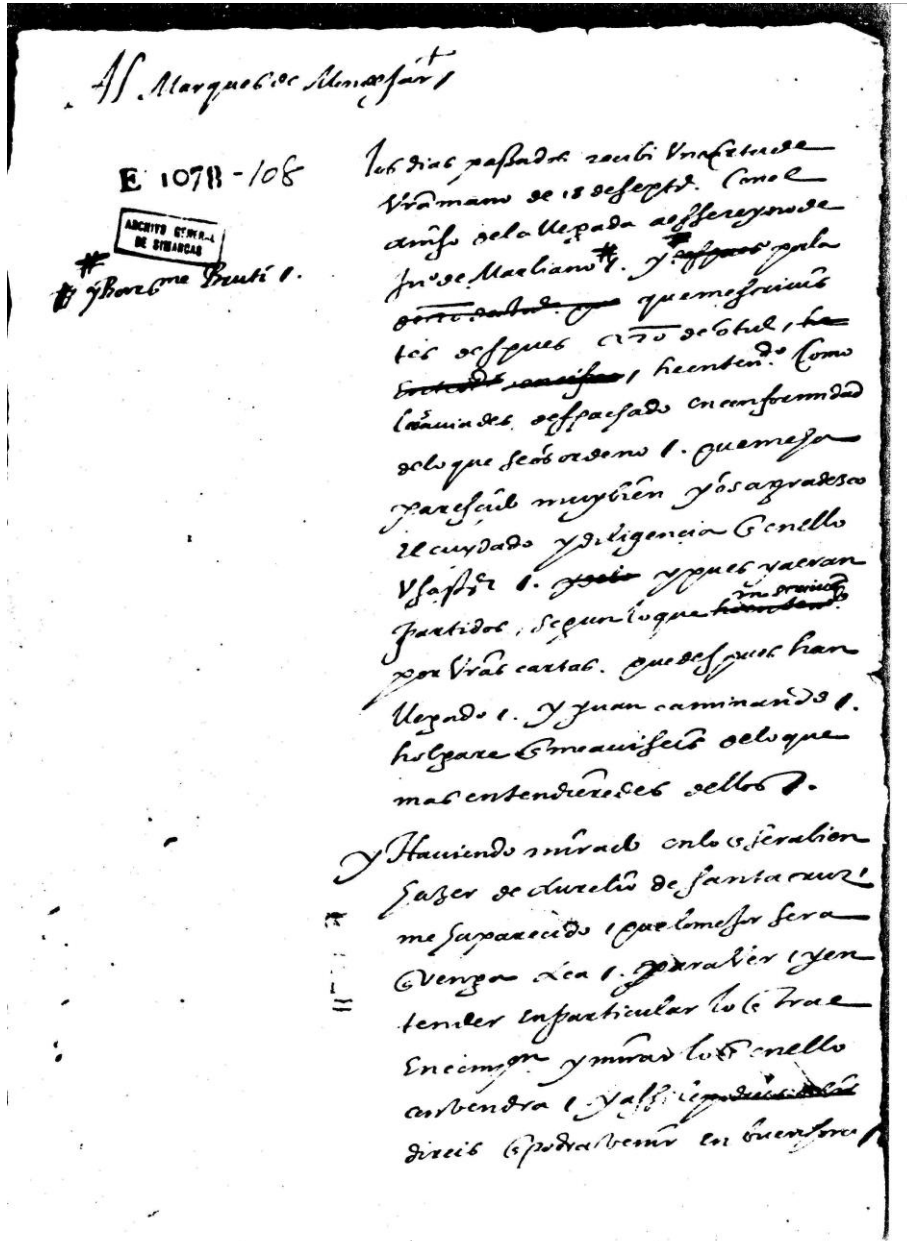 Al Marques de Mondejar
E 1078-108
ARCHIVO GENERAL
DE SIMANCAS
# y Bar.me Bruti
los dias passados recibi Una carta de
Vrã mano de 18 de septe. Con el
aviso de la llegada a esse reyno de
Ju.o de Marliano # y despues por la
que me scrivis
tes despues de otub,
he entend.do Como
los aviades despachado en conformidad
de lo que se os ordeno que me ha
parescido muy bien y os agradezco
el cuydado y diligencia q̃ en ello
y pues ya eran
partidos, segun lo que
por Vrãs cartas. que despues han
llegado y yuan caminando
holgare q̃ me aviseis de lo que
mas entendieredes dellos
y Haviendo mirado en lo q̃ sera bien
hazer de Aurelio de santa cruz
me ha parecido que lo mejor sera
q̃ venga aca para ver y en
tender en particular lo q̃ trae
En y mirar lo q̃ en ello
convendra y assi
direis q̃ podra venir en buen hora